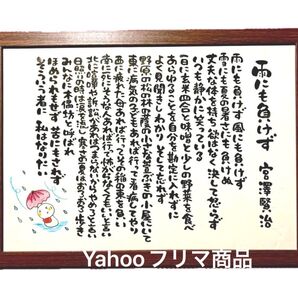 雨にも負けず 宮澤賢治
雨にも負けず風にも負けず
雪にも夏の暑さにも負けぬ
丈夫な体を持ち欲はなく決して怒らず
いつも静かに笑っている
一日に玄米四合と味噌と少しの野菜を食べ
あらゆることを自分を勘定に入れずに
よく見聞きしわかりそして忘れず
野原の松の林の蔭の小さな萱ぶきの小屋にいて
東に病気の子どもあれば行って看病してやり
西に疲れた母あれば行ってその稲の束を負い
南に死にそうな人あれば行って怖がらなくてもいいと言い
北に喧嘩や訴訟があればつまらないからやめろと言い
日照りの時は涙を流し寒さの夏はおろおろ歩き
みんなに木偶坊と呼ばれ
ほめられもせず 苦にもされず
そういう者に 私はなりたい
Yahooフリマ商品